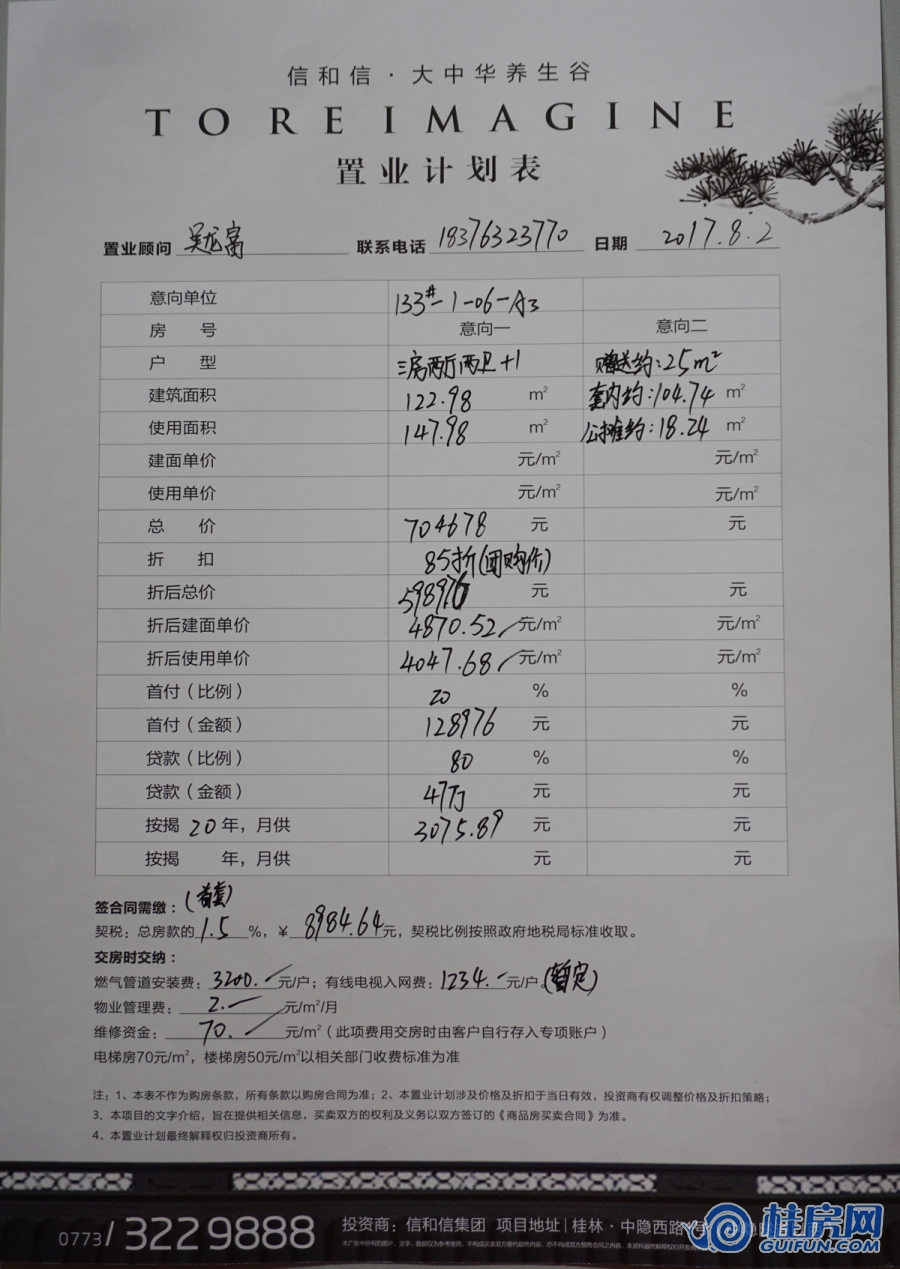 信和信·大中华养生谷
TO REIMAGINE
置业计划表
置业顾问 吴龙富 联系电话 18376323770 日期 2017.8.2
意向单位 133#-1-06-A3
房 号 意向一 意向二
户 型 三房两厅两卫+1 赠送约:25m²
建筑面积 122.98 m² 套内约:104.74 m²
使用面积 147.98 m² 公摊约:18.24 m²
建面单价 元/m² 元/m²
使用单价 元/m² 元/m²
总 价 704678 元 元
折 扣 85折(团购价)
折后总价 598976 元 元
折后建面单价 4870.52 元/m² 元/m²
折后使用单价 4047.68 元/m² 元/m²
首付(比例) 20 % %
首付(金额) 128976 元 元
贷款(比例) 80 % %
贷款(金额) 47万 元 元
按揭 20 年,月供 3075.89 元 元
按揭 年,月供 元 元
签合同需缴:(首套)
契税:总房款的1.5%,¥8984.64元,契税比例按照政府地税局标准收取。
交房时交纳:
燃气管道安装费:3200.-元/户;有线电视入网费:1234.-元/户.(暂定)
物业管理费:2.-元/m²/月
维修资金:70.-元/m²(此项费用交房时由客户自行存入专项账户)
电梯房70元/m²,楼梯房50元/m²以相关部门收费标准为准
注:1、本表不作为购房条款,所有条款以购房合同为准;2、本置业计划涉及价格及折扣于当日有效,投资商有权调整价格及折扣策略;
3、本项目的文字介绍,旨在提供相关信息,买卖双方的权利及义务以双方签订的《商品房买卖合同》为准。
4、本置业计划最终解释权归投资商所有。
0773/3229888 投资商:信和信集团 项目地址|桂林·中隐西路
桂房网
GUIFUN.COM